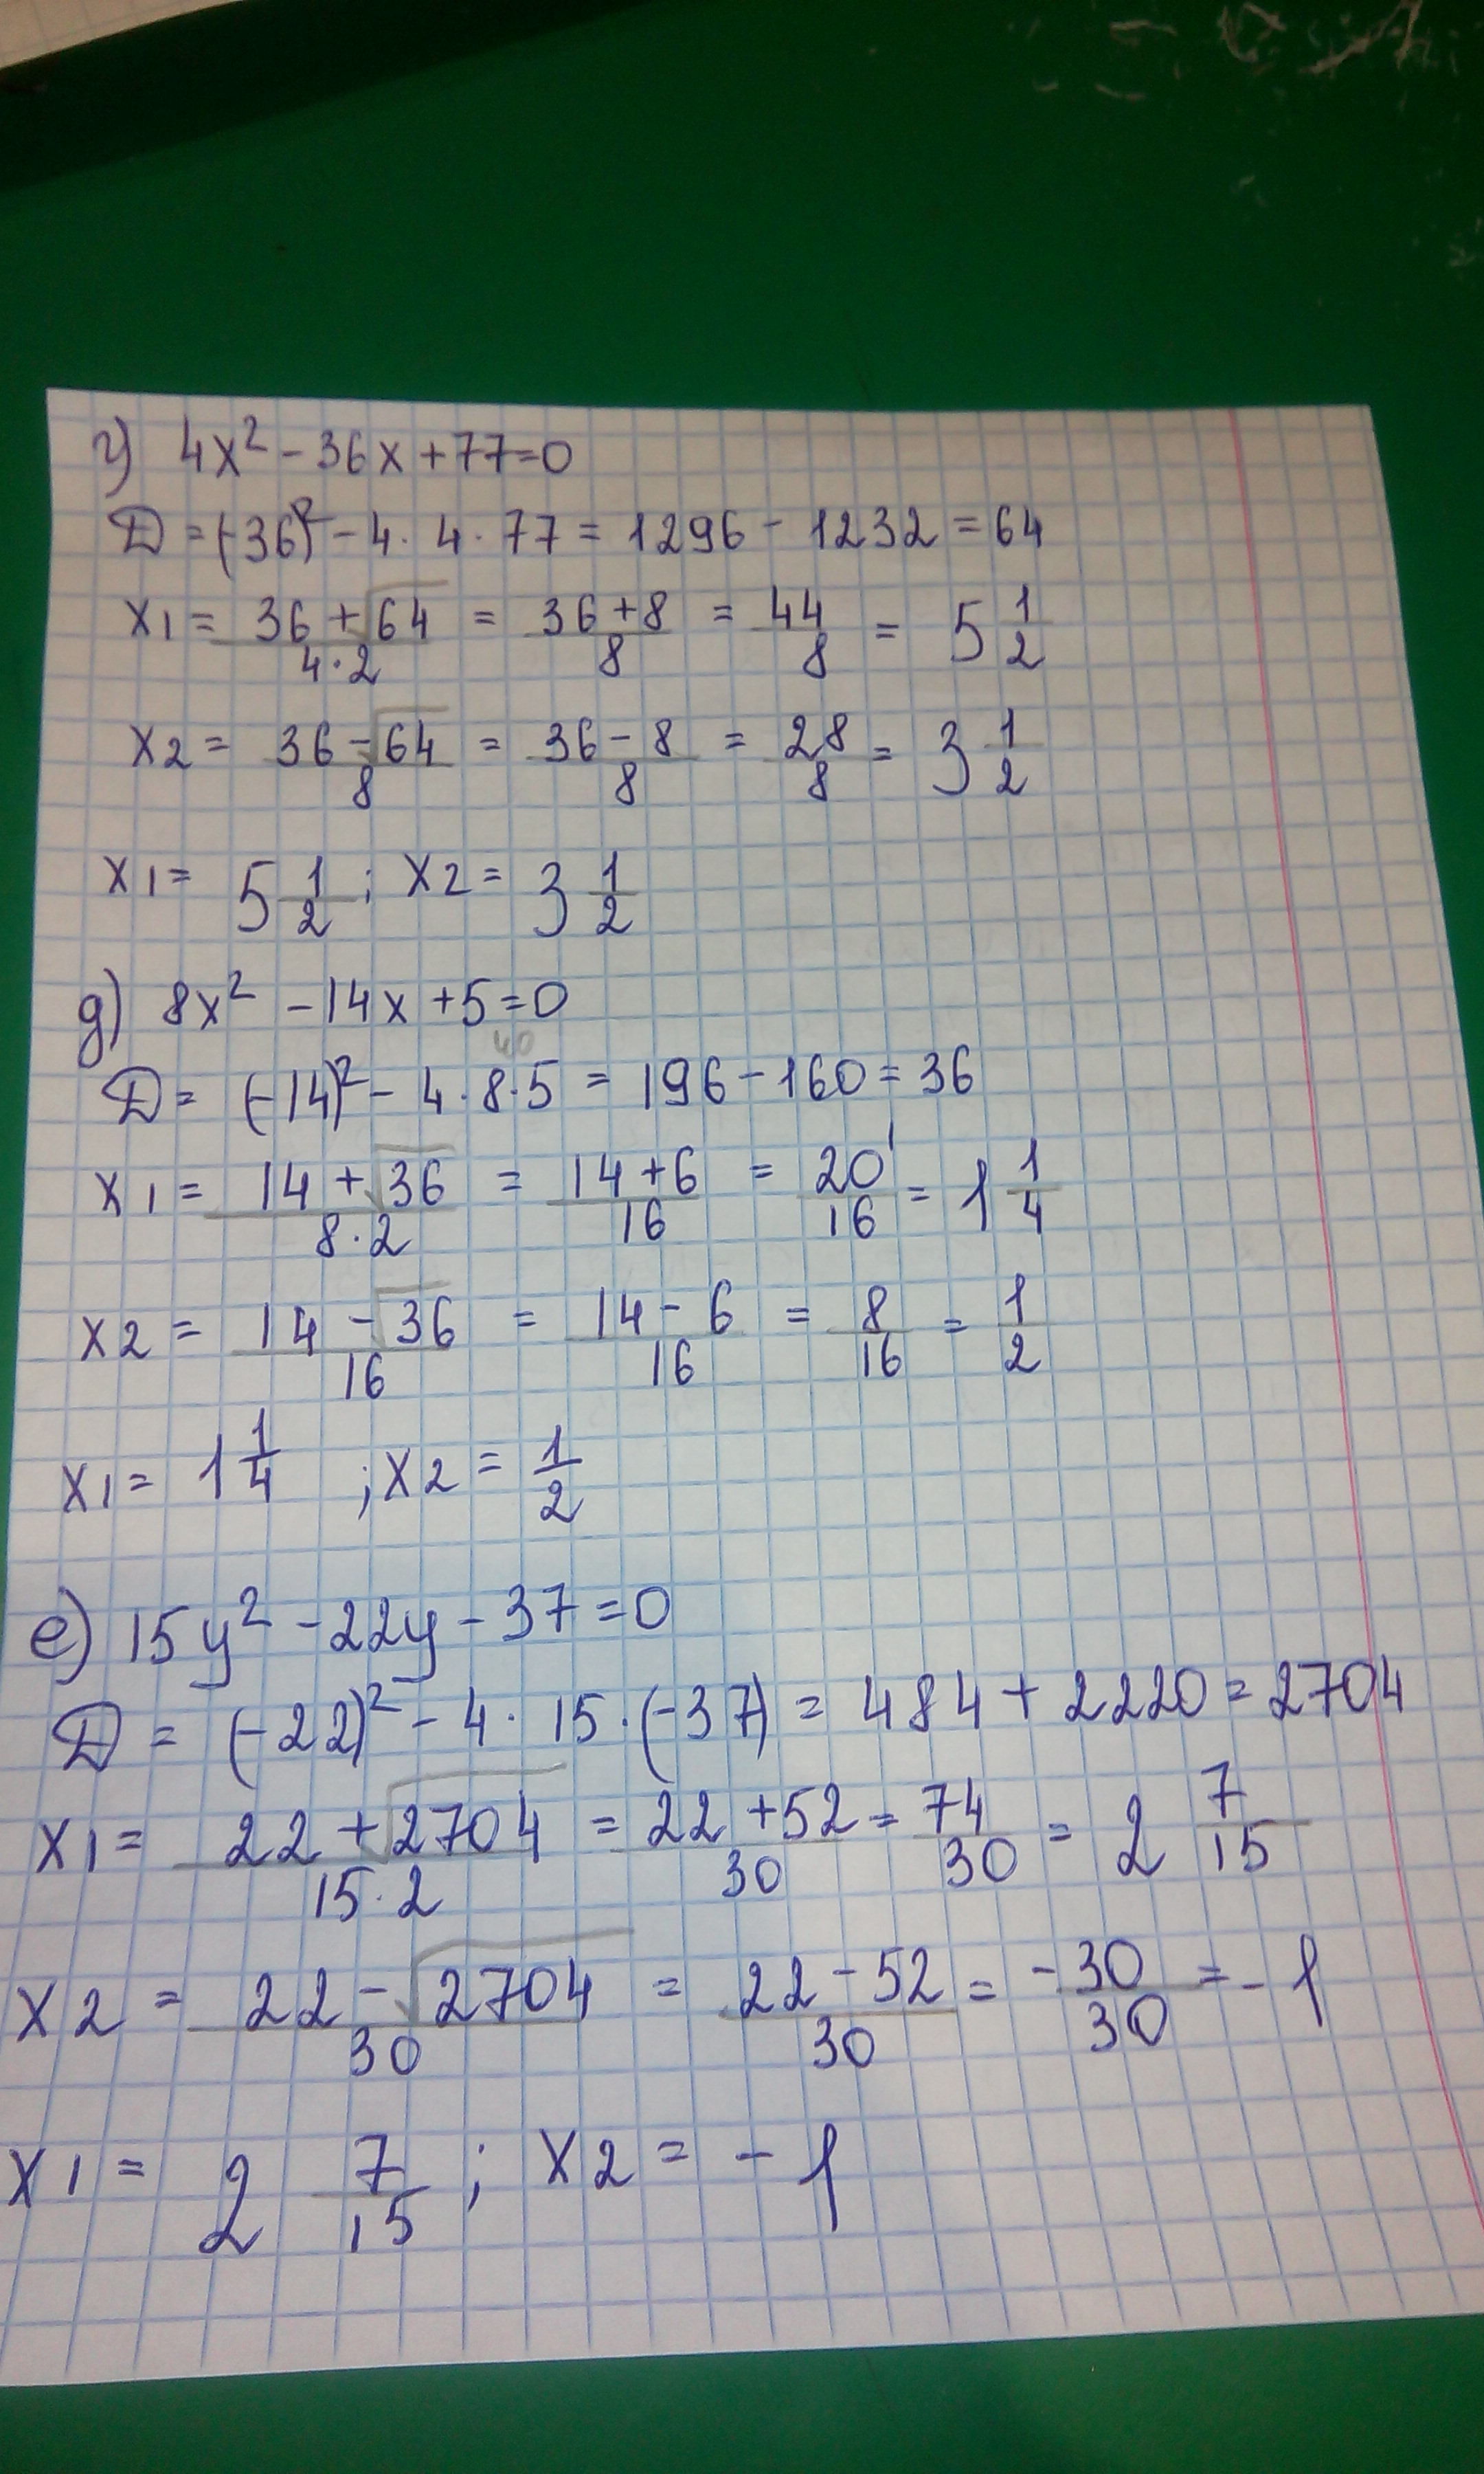 г) 4x² - 36x + 77 = 0
D = (-36)² - 4 · 4 · 77 = 1296 - 1232 = 64
x1 = (36 + √64)/(4·2) = (36+8)/8 = 44/8 = 5 1/2
x2 = (36 - √64)/8 = (36 - 8)/8 = 28/8 = 3 1/2
x1 = 5 1/2 ; x2 = 3 1/2
д) 8x² - 14x + 5 = 0
40
D = (-14)² - 4 · 8 · 5 = 196 - 160 = 36
x1 = (14 + √36)/(8·2) = (14+6)/16 = 20/16 = 1 1/4
x2 = (14 - √36)/16 = (14 - 6)/16 = 8/16 = 1/2
x1 = 1 1/4 ; x2 = 1/2
е) 15y² - 22y - 37 = 0
D = (-22)² - 4 · 15 · (-37) = 484 + 2220 = 2704
x1 = (22 + √2704)/(15·2) = (22+52)/30 = 74/30 = 2 7/15
x2 = (22 - √2704)/30 = (22 - 52)/30 = -30/30 = -1
x1 = 2 7/15 ; x2 = -1